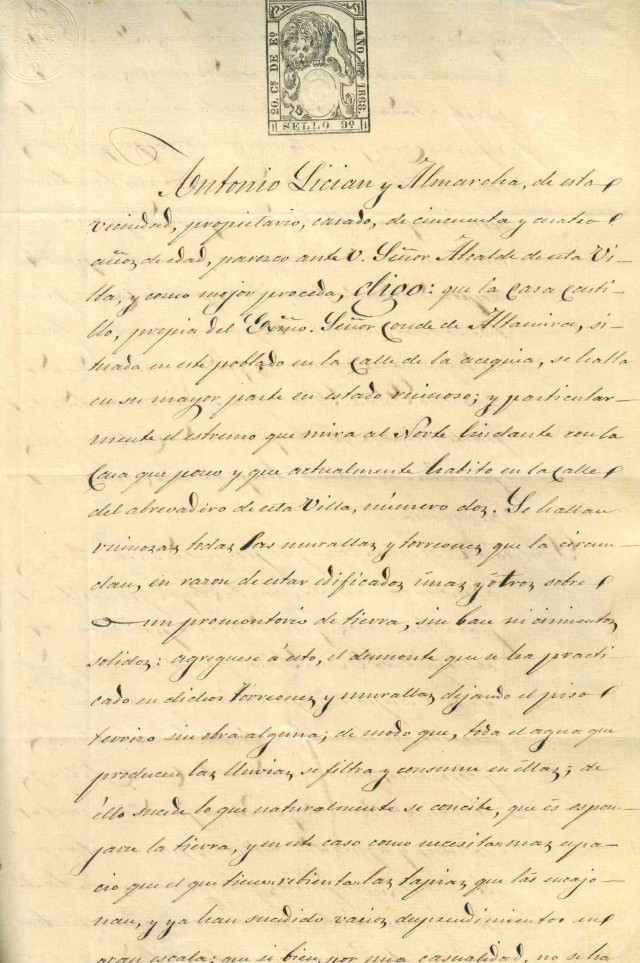 20. Cs DE Eo
AÑO 1868.
SELLO 9º
Antonio Lician y Almarcha, de esta
vecindad, propietario, casado, de cincuenta y cuatro
años de edad, parezco ante V. Señor Alcalde de esta Vi-
lla, y como mejor proceda, digo: que la Casa Casti-
llo, propia del Exmo. Señor Conde de Altamira, si-
tuada en este poblado en la calle de la acequia, se halla
en su mayor parte en estado ruinoso; y particular-
mente el estremo que mira al Norte lindante con la
Casa que poseo y que actualmente habito en la Calle
del abrevadero de esta Villa, número dos. Se hallan
ruinosas todas las murallas y torreones que la circun-
dan, en razon de estar edificados únas y ótros sobre
un promontorio de tierra, sin base ni cimientos
solidos: agreguese á ésto, el desmonte que se ha practi
cado en dichos torreones y murallas dejando el piso
terrizo sin obra alguna; de modo que, toda el agua que
producen las lluvias se filtra y consume en éllas; de
éllo sucede lo que naturalmente se concibe, que és espon-
jarse la tierra, y en este caso como necesita mas espa-
cio que el que tiene rebienta las tapias que las encajo-
nan, y ya han sucedido varios desprendimientos en
gran escala: que si bien por una casualidad, no se ha